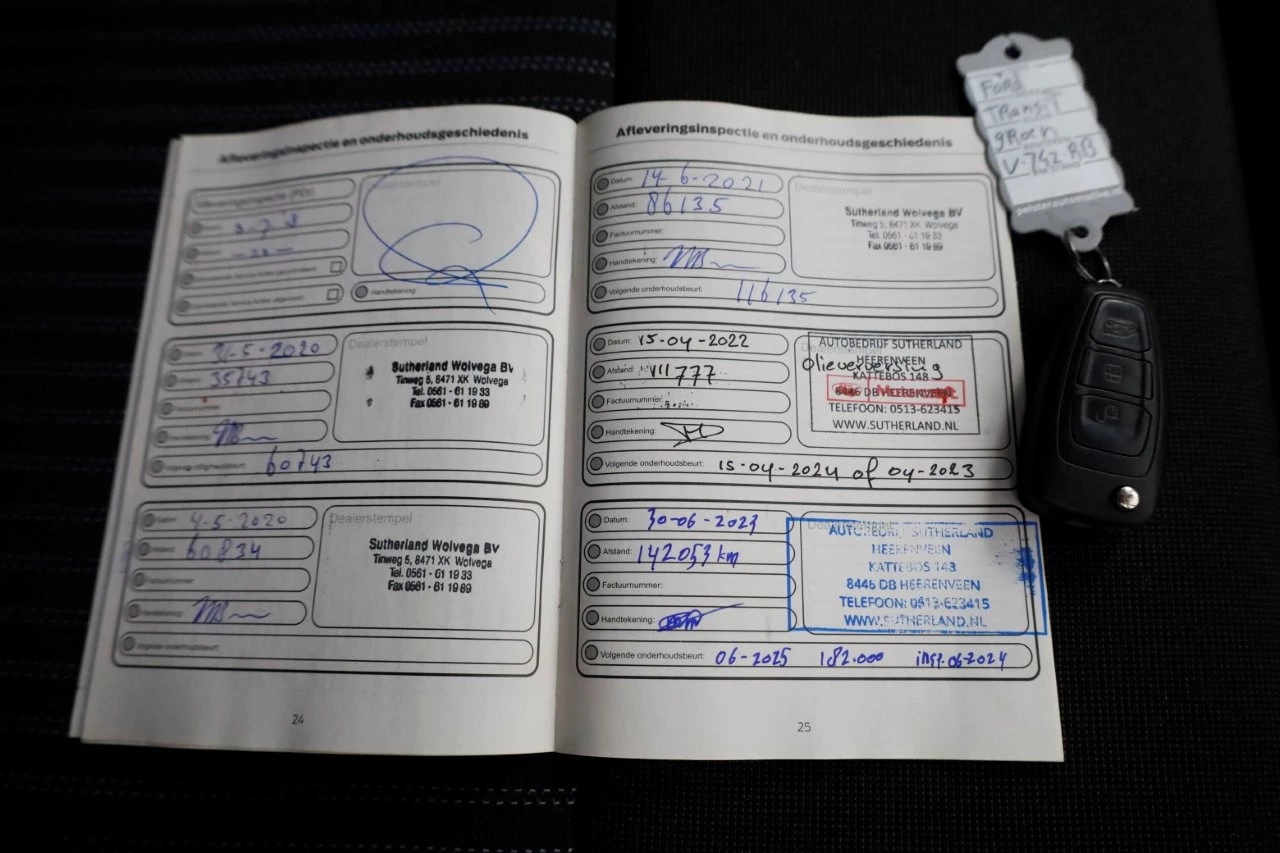 Afleveringsinspectie en onderhoudsgeschiedenis
Dealerstempel
Handtekening:
35743
Dealerstempel
Sutherland Wolvega BV
Tinweg 5, 8471 XK Wolvega
Tel. 0561 - 61 19 33
Fax 0561 - 61 19 89
60743
4-5-2020
60834
Dealerstempel
Sutherland Wolvega BV
Tinweg 5, 8471 XK Wolvega
Tel. 0561 - 61 19 33
Fax 0561 - 61 19 89
Factuurnummer:
Handtekening:
Volgende onderhoudsbeurt:
24
Afleveringsinspectie en onderhoudsgeschiedenis
Datum: 14-6-2021
Afstand: 86135
Factuurnummer:
Handtekening:
Volgende onderhoudsbeurt: 116135
Dealerstempel
Sutherland Wolvega BV
Tinweg 5, 8471 XK Wolvega
Tel. 0561 - 61 19 33
Fax 0561 - 61 19 89
Datum: 15-04-2022
Afstand: 111777
Factuurnummer:
Handtekening:
Volgende onderhoudsbeurt: 15-04-2024 of 04-2023
AUTOBEDRIJF SUTHERLAND
HEERENVEEN
olieverversing
KATTEBOS 148
8446 DB HEERENVEEN
TELEFOON: 0513-623415
WWW.SUTHERLAND.NL
Datum: 30-06-2023
Afstand: 142053 km
Factuurnummer:
Handtekening:
Volgende onderhoudsbeurt: 06-2025 182.000 insp. 06-2024
AUTOBEDRIJF SUTHERLAND
HEERENVEEN
KATTEBOS 148
8446 DB HEERENVEEN
TELEFOON: 0513-623415
WWW.SUTHERLAND.NL
25
Ford
Transit
gRoen
V-742-RB